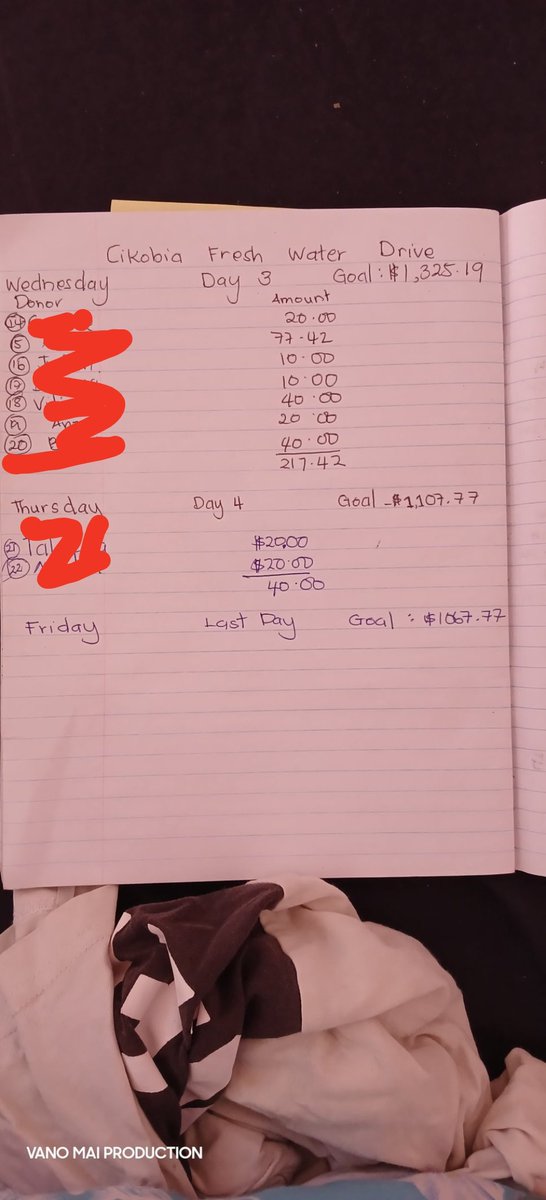 Cikobia Fresh Water Drive
Wednesday Day 3 Goal: $1,325.19
Donor Amount
14 20.00
15 77.42
16 10.00
17 10.00
18 40.00
19 20.00
20 40.00
217.42
Thursday Day 4 Goal - $1,107.77
21 $20.00
22 $20.00
40.00
Friday Last Day Goal: $1067.77
VANO MAI PRODUCTION